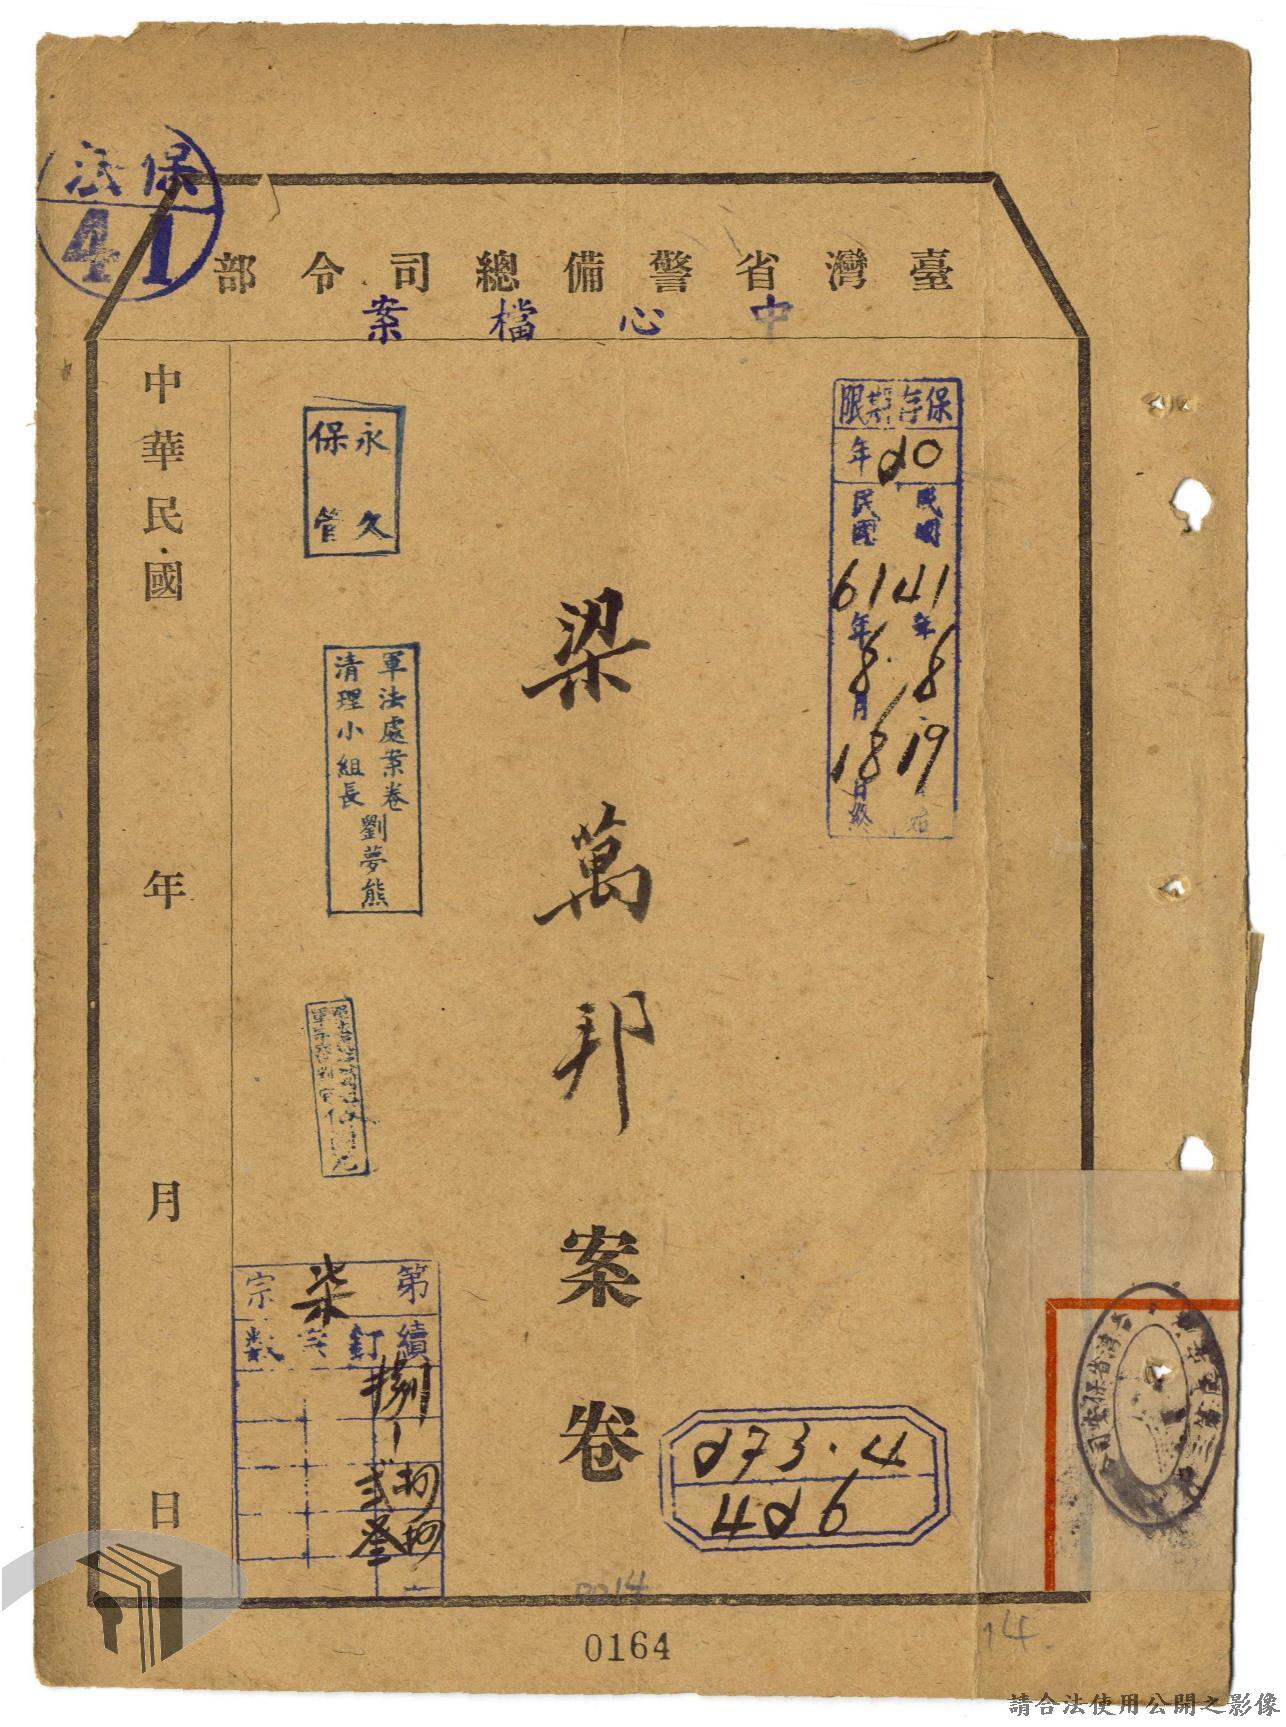 保法
41
臺灣省警備總司令部
中心檔案
保存期限
20年
民國41年8月19
民國61年8月18日終
梁萬邦案卷
永久
保管
軍法處案卷
清理小組長
劉夢熊
中華民國
年
月
日
第柒宗
續訂
273.4
426
0164
14
請合法使用公開之影像